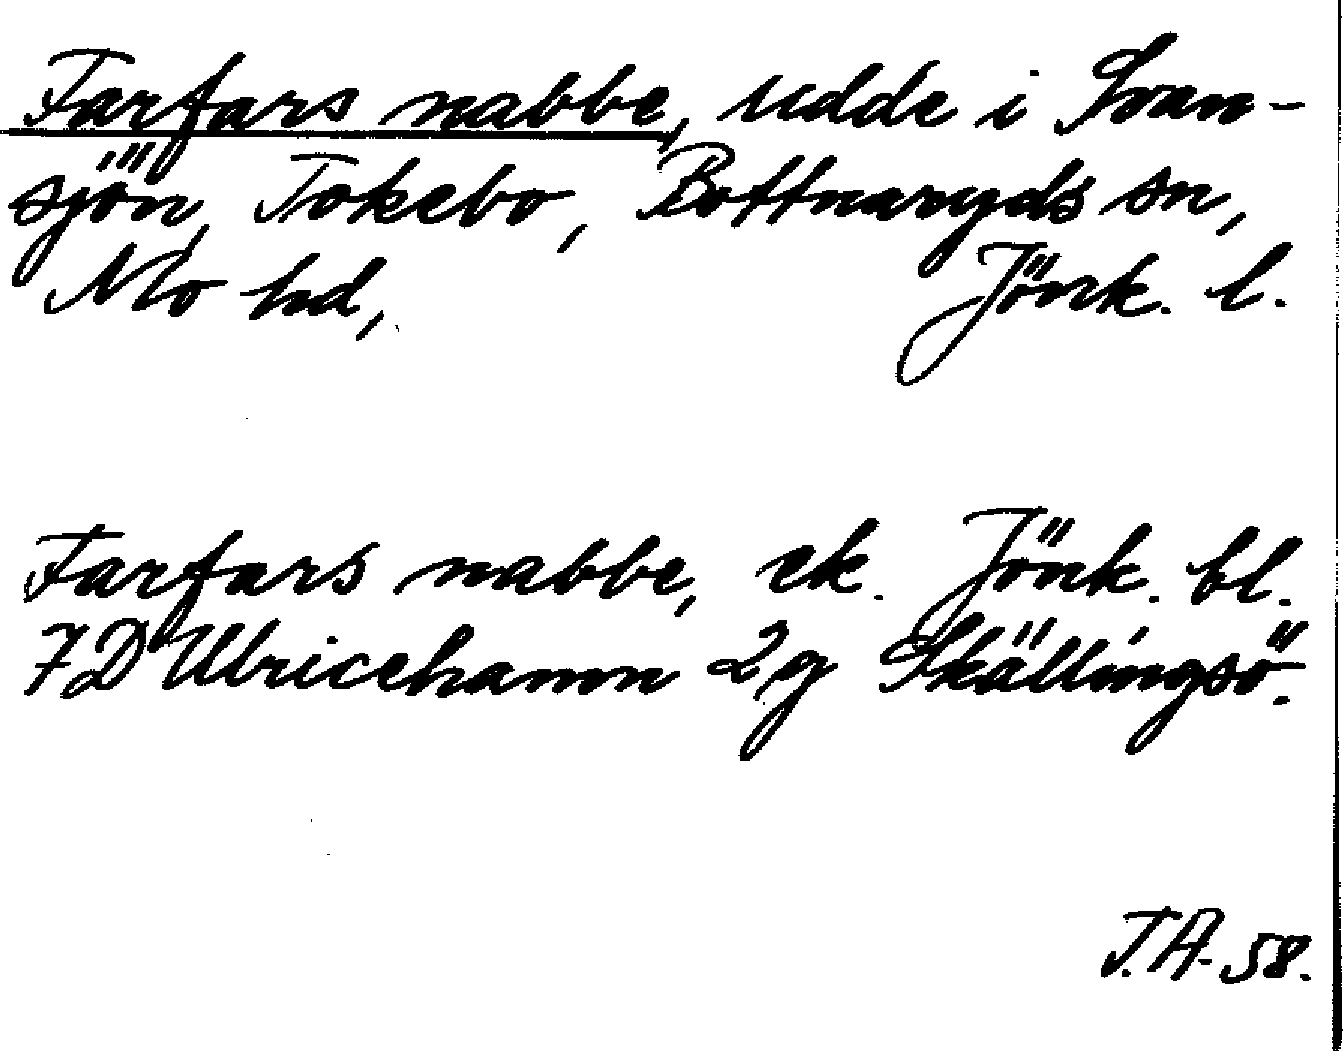 Farfars nabbe, udde i Svan-
sjön, Tokebo, Bottnaryds sn,
Mo hd, Jönk. l.
Farfars nabbe, ek. Jönk. bl.
7D Ulricehamn 2g Skällingsö.
T.A. 58.